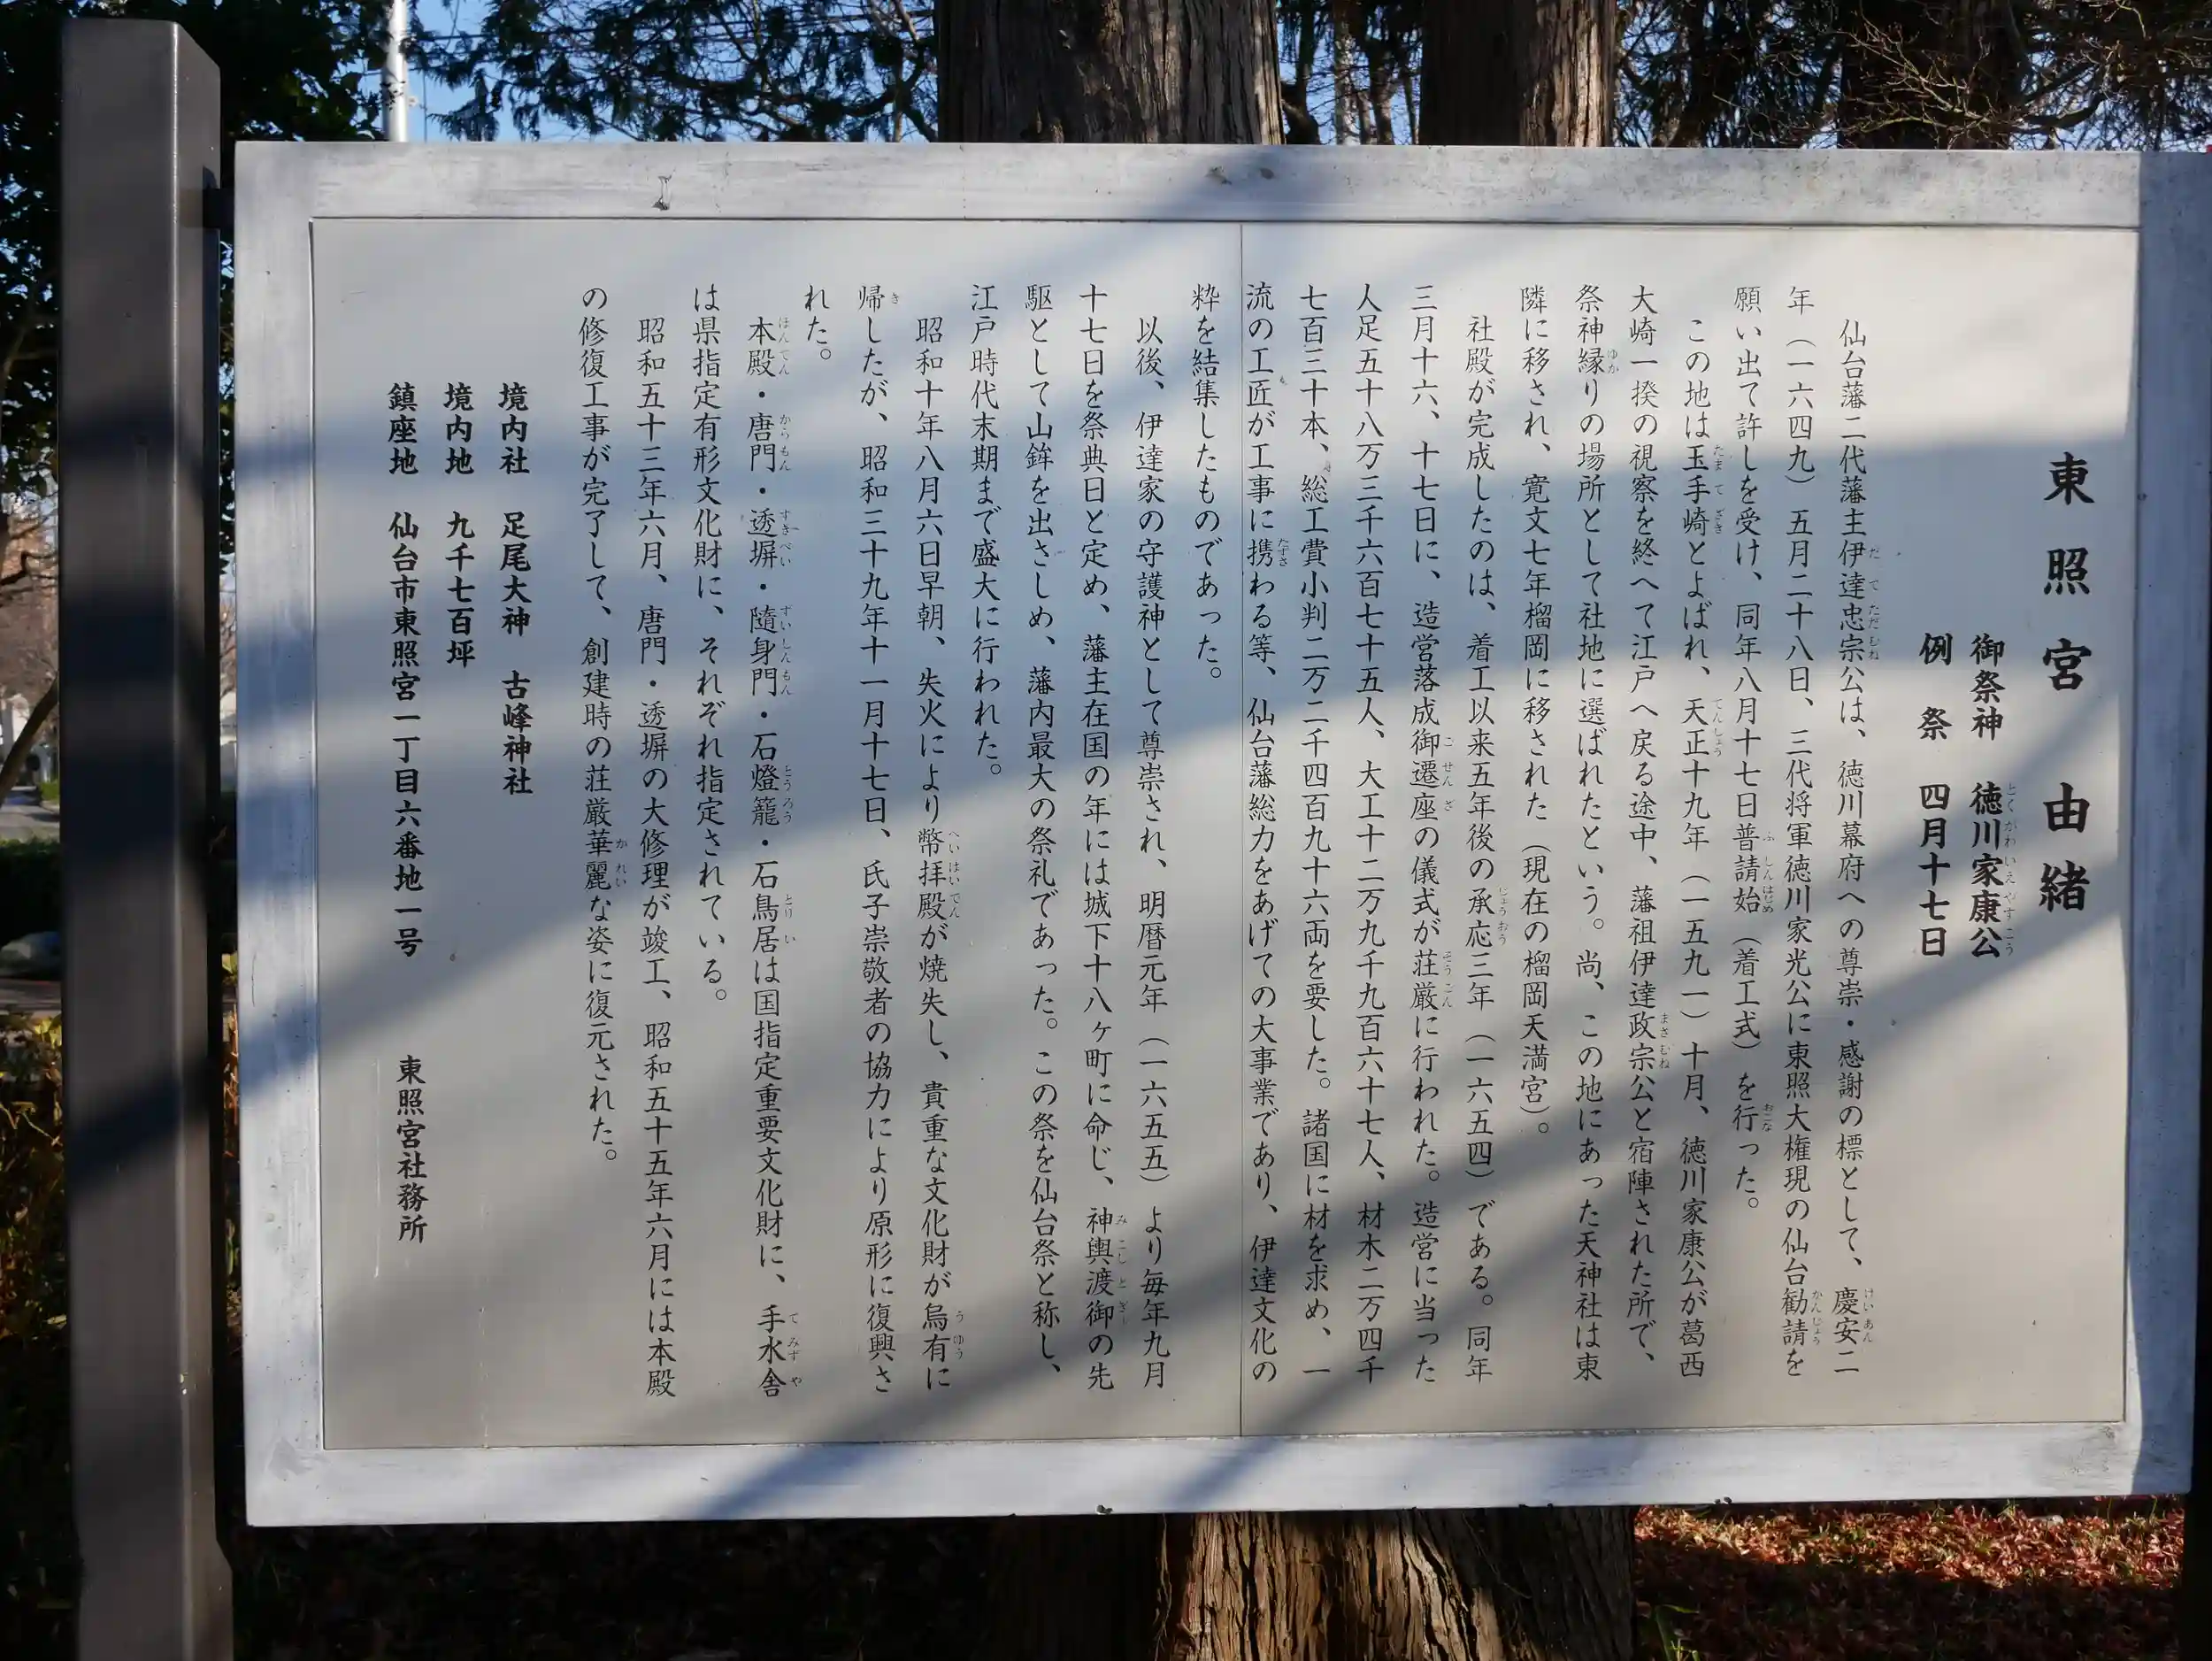 東照宮 由緒
御祭神 徳川家康公
例 祭 四月十七日
仙台藩二代藩主伊達忠宗公は、徳川幕府への尊崇・感謝の標として、慶安二
年（一六四九）五月二十八日、三代将軍徳川家光公に東照大権現の仙台勧請を
願い出て許しを受け、同年八月十七日普請始（着工式）を行った。
この地は玉手崎とよばれ、天正十九年（一五九一）十月、徳川家康公が葛西
大崎一揆の視察を終へて江戸へ戻る途中、藩祖伊達政宗公と宿陣された所で、
祭神縁りの場所として社地に選ばれたという。尚、この地にあった天神社は東
隣に移され、寛文七年榴岡に移された（現在の榴岡天満宮）。
社殿が完成したのは、着工以来五年後の承応三年（一六五四）である。同年
三月十六、十七日に、造営落成御遷座の儀式が荘厳に行われた。造営に当った
人足五十八万三千六百七十五人、大工十二万九千九百六十七人、材木二万四千
七百三十本、総工費小判二万二千四百九十六両を要した。諸国に材を求め、一
流の工匠が工事に携わる等、仙台藩総力をあげての大事業であり、伊達文化の
粋を結集したものであった。
以後、伊達家の守護神として尊崇され、明暦元年（一六五五）より毎年九月
十七日を祭典日と定め、藩主在国の年には城下十八ヶ町に命じ、神輿渡御の先
駆として山鉾を出さしめ、藩内最大の祭礼であった。この祭を仙台祭と称し、
江戸時代末期まで盛大に行われた。
昭和十年八月六日早朝、失火により幣拝殿が焼失し、貴重な文化財が烏有に
帰したが、昭和三十九年十一月十七日、氏子崇敬者の協力により原形に復興さ
れた。
本殿・唐門・透塀・隨身門・石燈籠・石鳥居は国指定重要文化財に、手水舎
は県指定有形文化財に、それぞれ指定されている。
昭和五十三年六月、唐門・透塀の大修理が竣工、昭和五十五年六月には本殿
の修復工事が完了して、創建時の荘厳華麗な姿に復元された。
境内社 足尾大神 古峰神社
境内地 九千七百坪
鎮座地 仙台市東照宮一丁目六番地一号
東照宮社務所